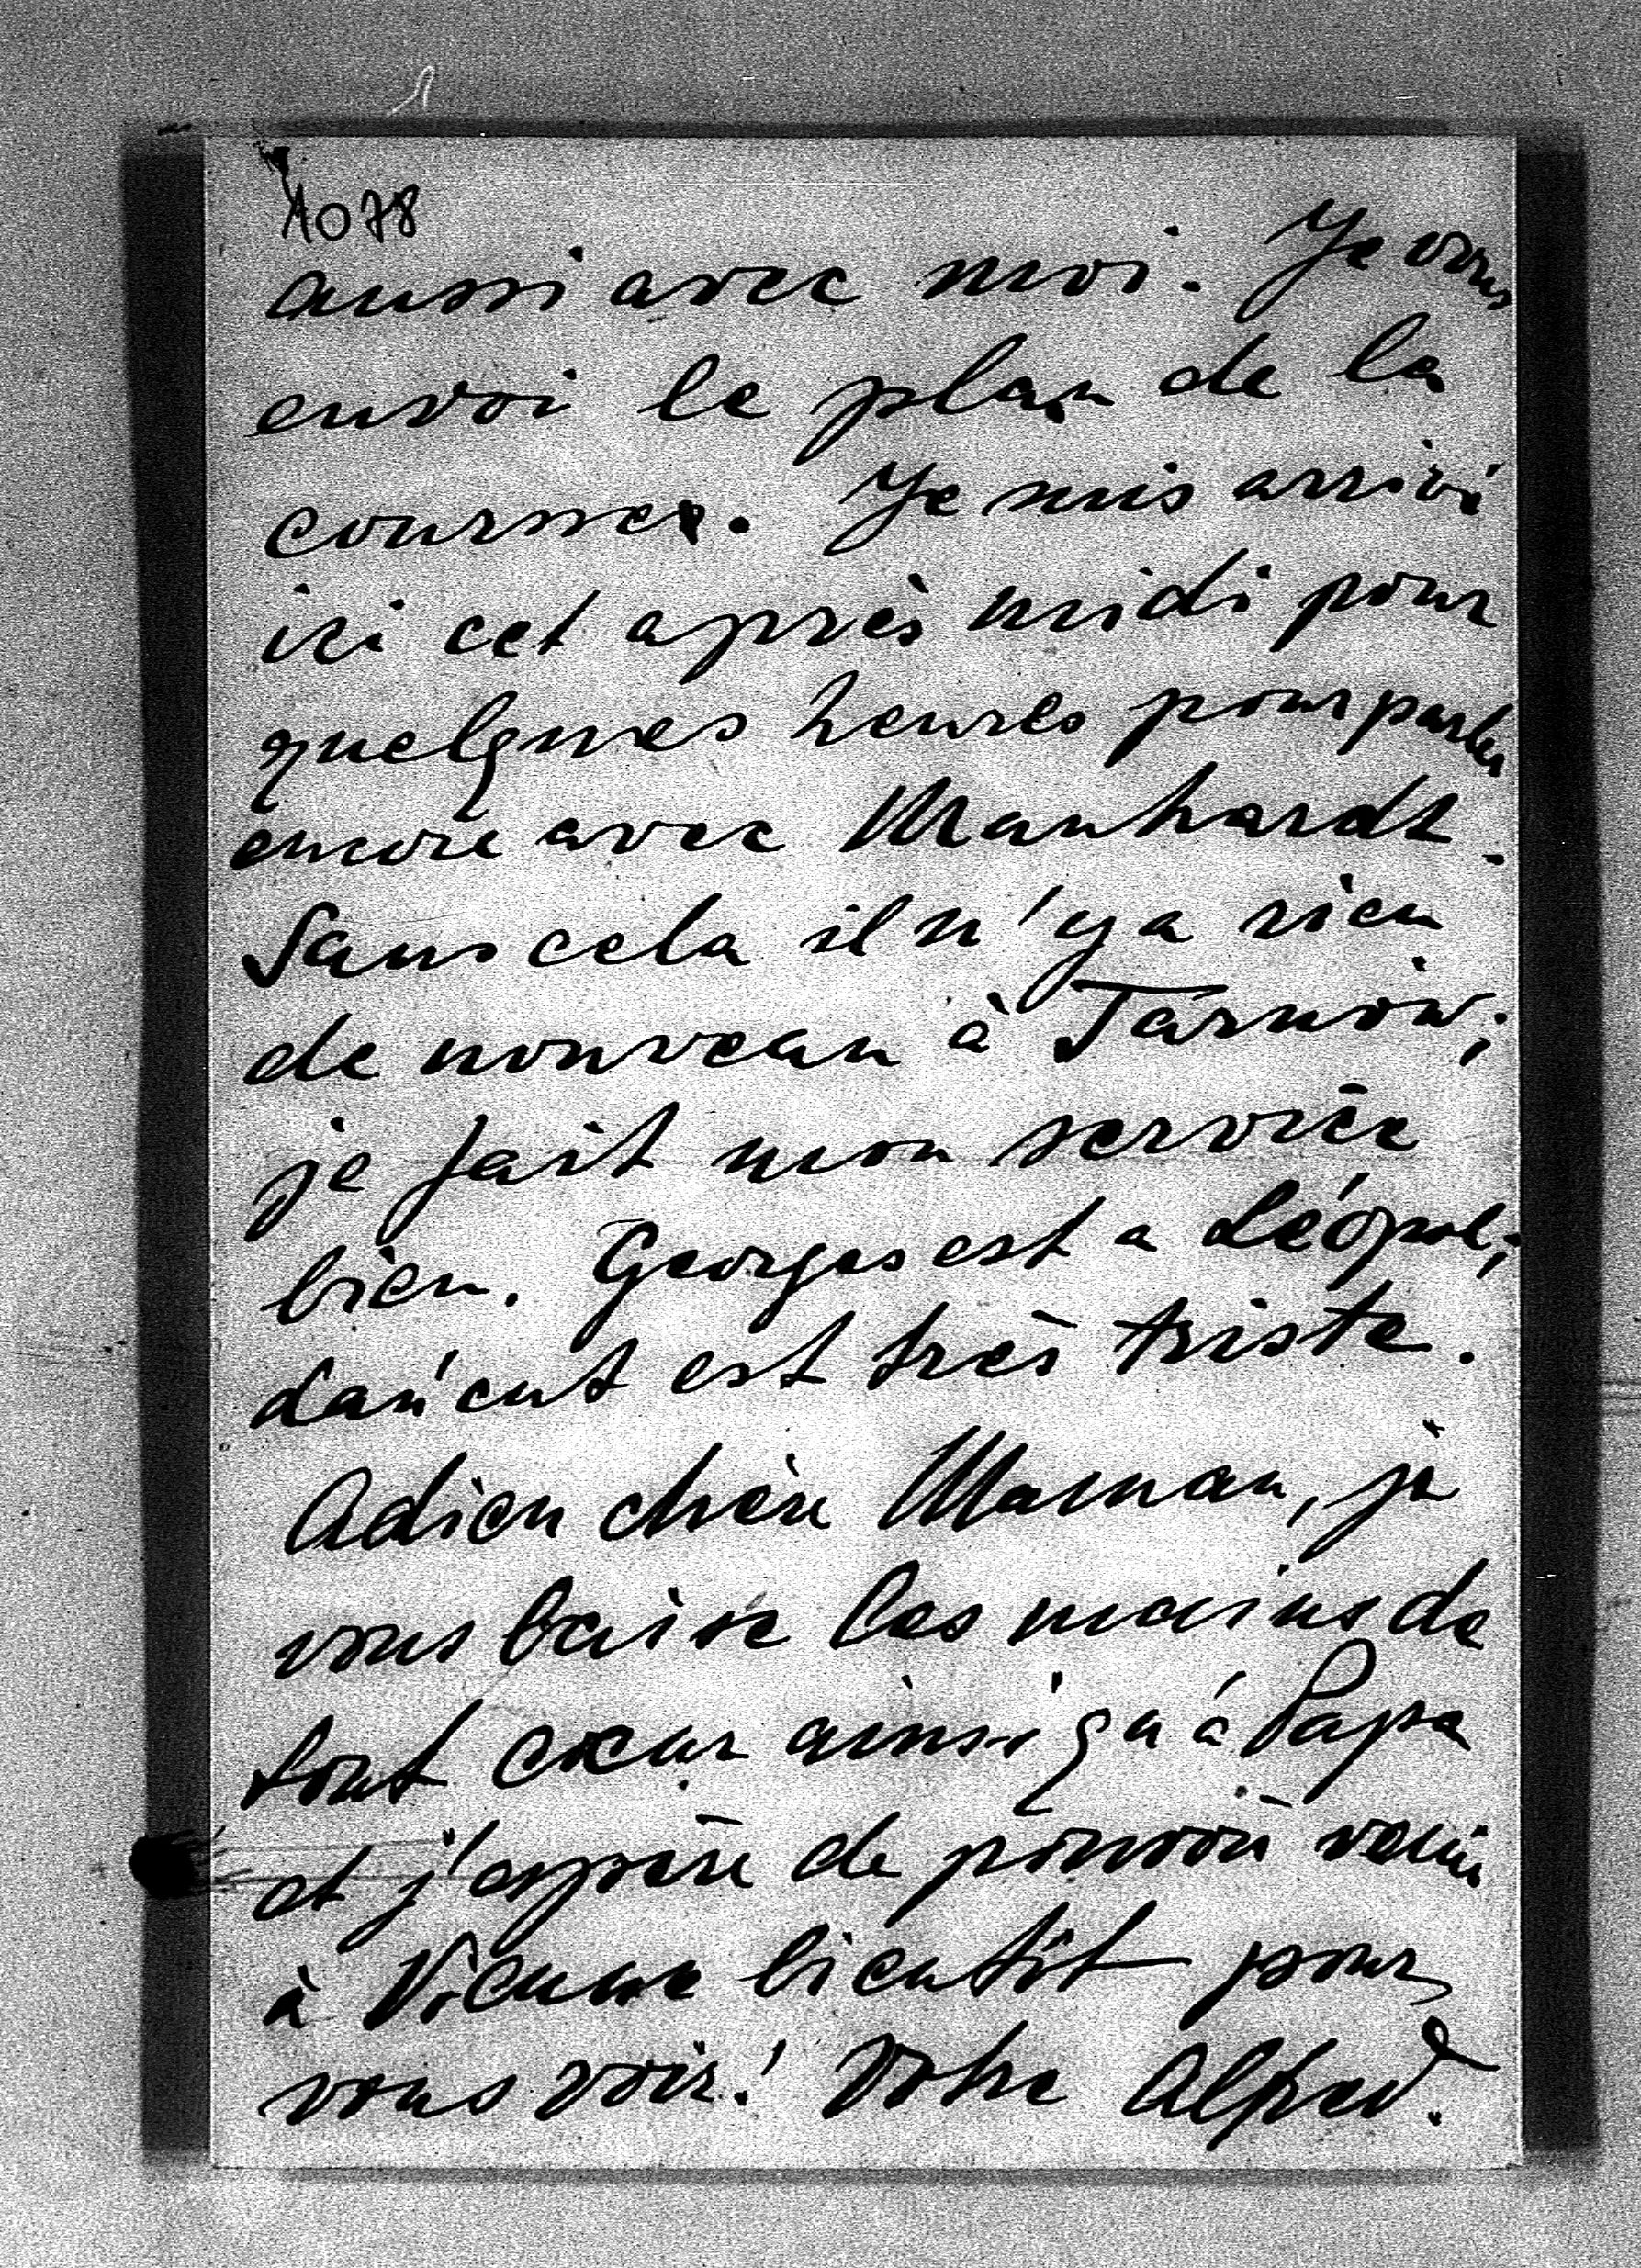 1078
aussi avec moi. Je vous
envoi le plan de la
course. Je suis arrivé
ici cet après midi pour
quelques heures pour parler
encore avec Manhardt.
Sans cela il n'y a rien
de nouveau à Tarnów;
je fait mon service
bien. Georges est a Léopol;
Łańcut est très triste.
Adieu chère Maman, je
vous baise les mains de
tout cœur ainsi qu'à Papa
et j'espère de pouvoir venir
à Vienne bientôt pour
vous voir! Votre Alfred.